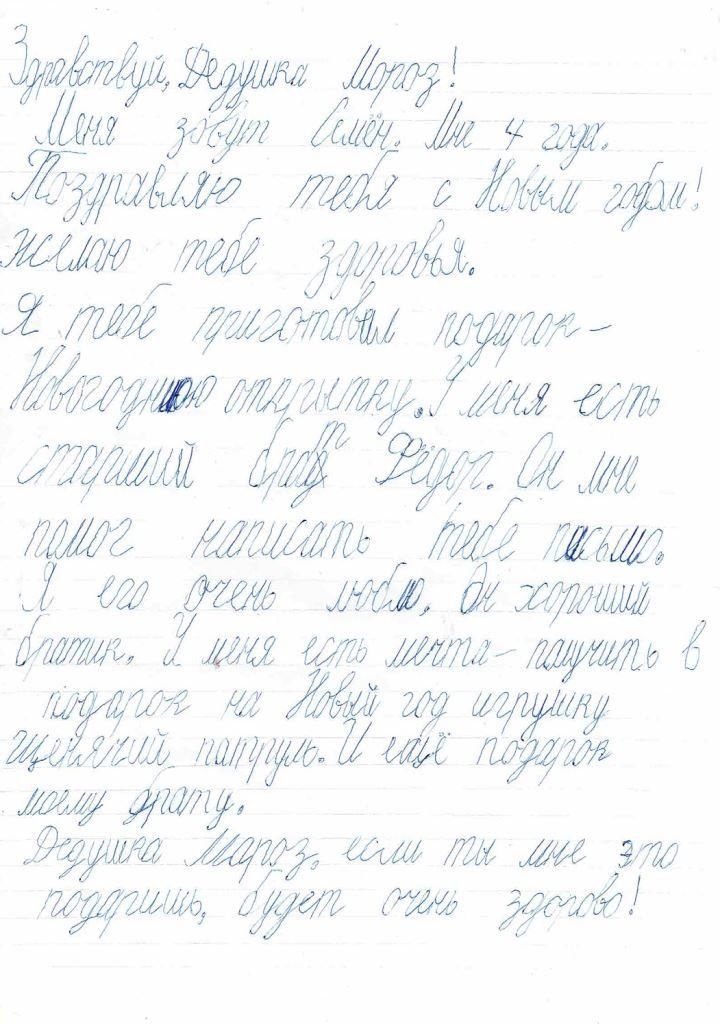 Здравствуй, Дедушка Мороз!
Меня зовут Семён. Мне 4 года.
Поздравляю тебя с Новым годом!
желаю тебе здоровья.
Я тебе приготовил подарок -
Новогоднюю открытку. У меня есть
старший брат Фёдор. Он мне
помог написать тебе письмо.
Я его очень люблю. Он хороший
братик. У меня есть мечта - получить в
подарок на Новый год игрушку
щенячий патруль. И ещё подарок
моему брату.
Дедушка Мароз, если ты мне это
подаришь, будет очень здорово!